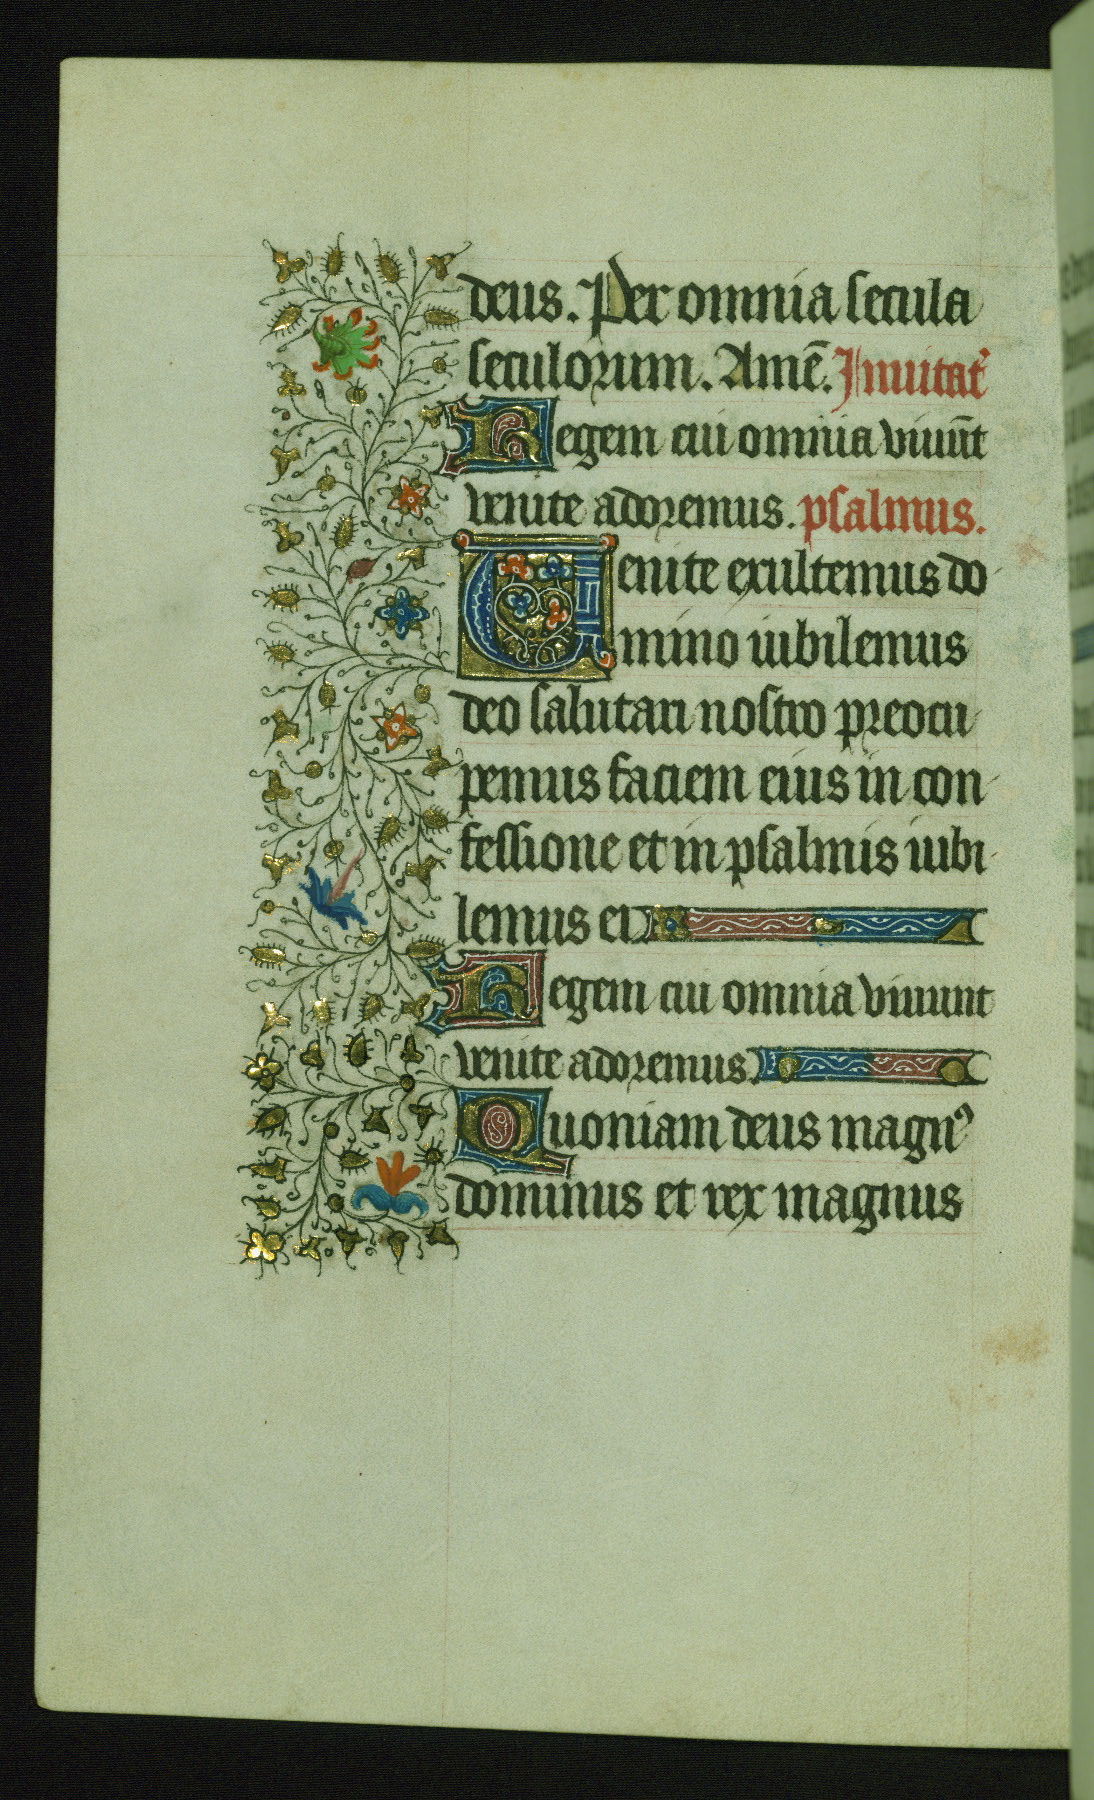 deus. Per omnia secula
seculorum. Amē. Inuitat᷒
Regem cui omnia viuūt
venite adoremus. psalmus.
Uenite exultemus do
mino iubilemus
deo salutari nostro preocu
pemus faciem eius in con
fessione et in psalmis iubi
lemus ei
Regem cui omnia viuunt
venite adoremus.
Quoniam deus magnꝰ
dominus et rex magnus